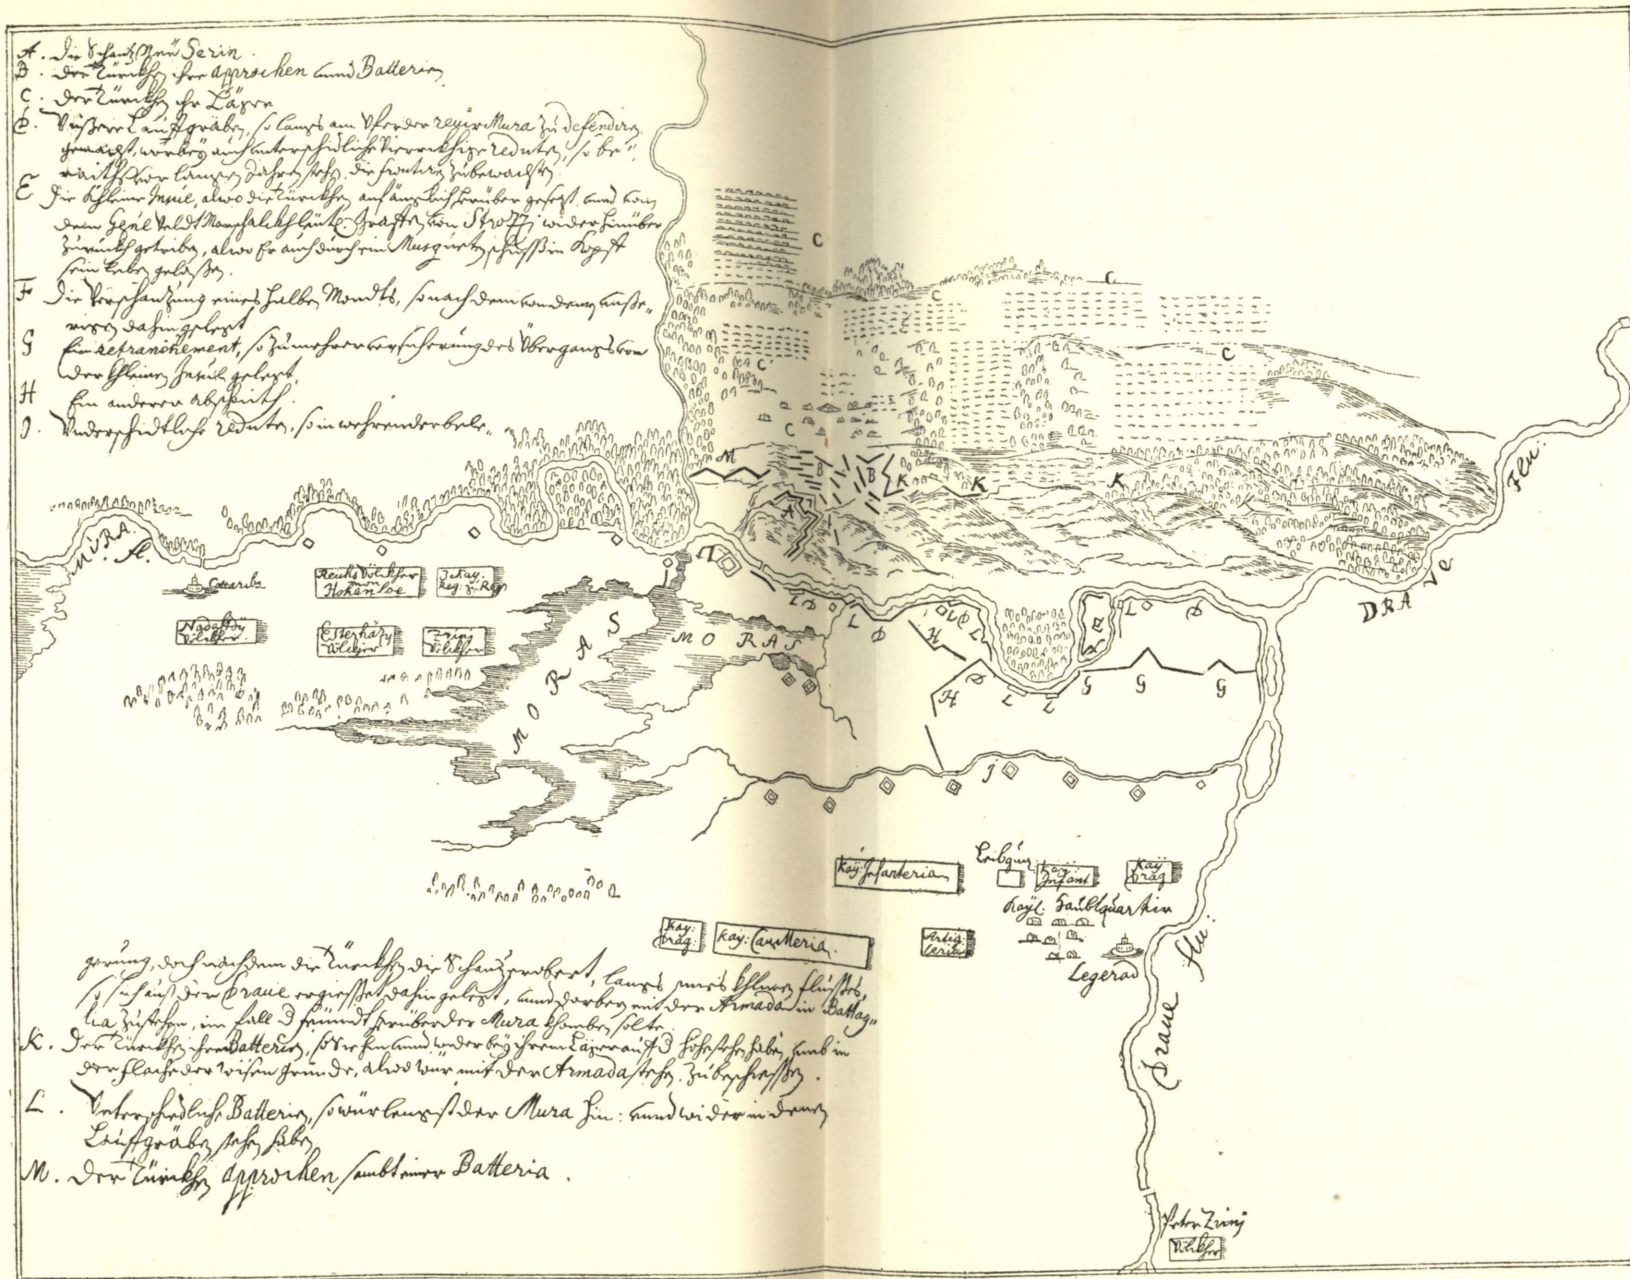 A. Die Schantz Neü Serin.
B. der Türckhen ihre Approchen unnd Batterien
C. der Türckhen ihr Läger
D. Lauffgräben, so langs am Ufer der Mura zu defendirn
gemacht, worbey auch unterschidliche Viereckhige reduten, so be=
raiths vor langen Jahren stehen, die frontiren zubewachen.
E Die Khleine Insul, alwo die Türckhen anfänglich herüber gesezt, unnd vom
dem Veldt Marschalckh Graffen von Strozzj wider hinüber
zuruckh getriben, alwo Er auch durch ein Musqueten schuss in Kopff
sein leben gelassen.
F Die Verschantzung eines halben Mondts, so nach dem von denen
dahin gelegt
G Ein Retranchement, so zu mehrer versicherung des Übergangs von
der khleinen Insul gelegt.
H Ein anderer Abschnith.
J. Underschidtliche reduten, so in wehrender bele=
C
C
C
C
C
C
M
B
B
K
K
K
A
MURA fl.
Cottariba
Reichs Völckher
von
Hohenloe
Kay:
Reg.
Nadasdy
Völckher
Esterházy
Völckher
Zriny
Völckher
MORAS
MORAS
L
L
D
L
D
H
D
L
L
E
L
D
H
D
L
L
G
G
G
J
DRAVE Flu:
Kay: Infanteria
Leibgu:
Infant
Kay
Drag
Kayl: Haubtquartir
Kay:
Drag:
Kay: Cavalleria.
Artig
leria
Legerad
gerung, doch nachdem die Türckhen die Schantz erobert, langs eines khleinen flusses,
so sich aus der Draue ergiesset, dahin gelegt, unnd darbey mit der Armada in Battag=
lia zustehen, im fall d feündt herüber der Mura khomben solte
K. Der Türckhen ihre Batterien, so Sie hin unnd wider bey ihrem Läger auff d höhe stehen haben, umb in
der flache der wisen gründe, alwo wür mit der Armada stehen, zu beschiessen.
L. Unterschidliche Batterien, so wür lengst der Mura hin: unnd wider in denen
Lauffgräben stehen haben
M. Der Türckhen Approchen sambt einer Batteria.
Draue flu:
Peter Zrinj
Völckher